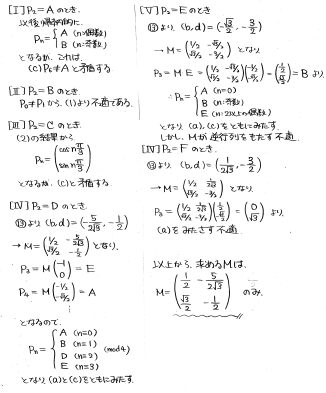 [I] P₂=A のとき.
以後帰納的に.
Pn = { A (n=偶数)
B (n:奇数)
となるが、これは、
(c) P₆≠A と矛盾する
[II] P₂=B のとき.
P₀≠P₁ から、(1)より不適である.
[III] P₂=C のとき.
(2)の結果から
Pn = (cos nπ/3
sin nπ/3)
となるが、(c)と矛盾する.
[IV] P₂=D のとき.
⑬より (b,d)=(-5/2√3, -1/2)
→ M = (1/2 -5/2√3
√3/2 -1/2) となり、
P₃ = M(-1
0) = E
P₄ = M(-1/2
-√3/2) = A
となるので、
Pn = { A (n=0)
B (n=1)
D (n=2) (mod4)
E (n=3)
となり (a)と(c)をともにみたす.
[V] P₂=E のとき
⑬より (b,d)=(-√3/2, -3/2)
→ M = (1/2 -√3/2
√3/2 -3/2) となり
P₃ = M E = (1/2 -√3/2
√3/2 -3/2)(-1/2
-√3/2) = (1/2
√3/2) = B より
∴ Pn = { A (n=0)
B (n:奇数)
E (n=2以上の偶数)
となり (a),(c)をともにみたす.
しかし、Mが逆行列をもたず不適
[IV] P₂=F のとき.
⑬より (b,d)=(1/2√3, -3/2)
→ M = (1/2 1/2√3
√3/2 -3/2) となり.
P₃ = (1/2 1/2√3
√3/2 -3/2)(1/2
-√3/2) = (0
√3) より
(a)をみたさず不適
以上から、求めるMは、
M = (1/2 -5/2√3
√3/2 -1/2) のみ.